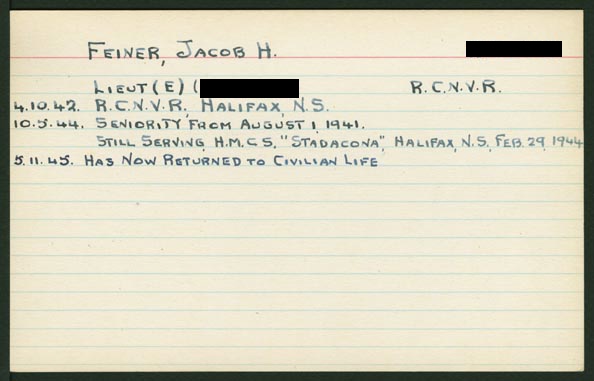 FEINER, JACOB H.
LIEUT (E) ( R.C.N.V.R.
4.10.42. R.C.N.V.R. HALIFAX, N.S.
10.5.44. SENIORITY FROM AUGUST 1, 1941.
STILL SERVING, H.M.C.S. "STADACONA", HALIFAX, N.S. FEB. 29, 1944
5.11.45. HAS NOW RETURNED TO CIVILIAN LIFE